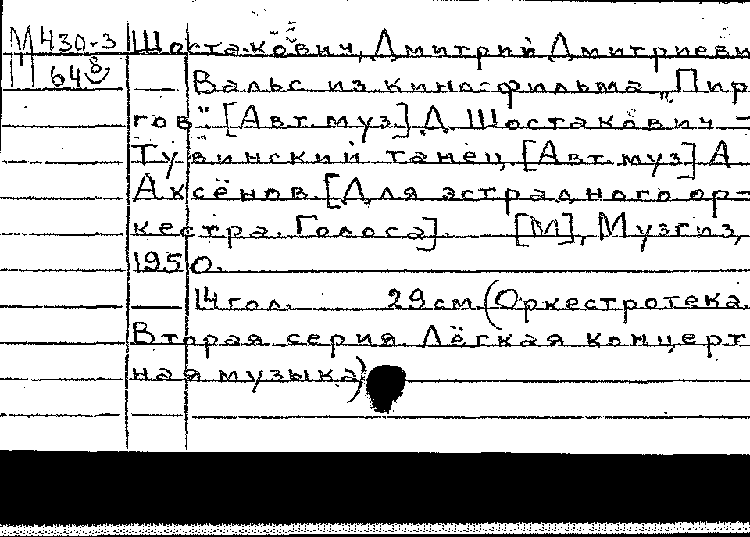 М 430-3 Шостакович, Дмитрий Дмитриеви
64 8 Вальс из кинофильма „Пир
гов". [Авт. муз.] Д. Шостакович –
Тувинский танец. [Авт. муз.] А.
Аксёнов. [Для эстрадного ор-
кестра. Голоса]. [М], Музгиз,
1950.
14 гол. 29 см. (Оркестротека.
Вторая серия. Лёгкая концерт
ная музыка)